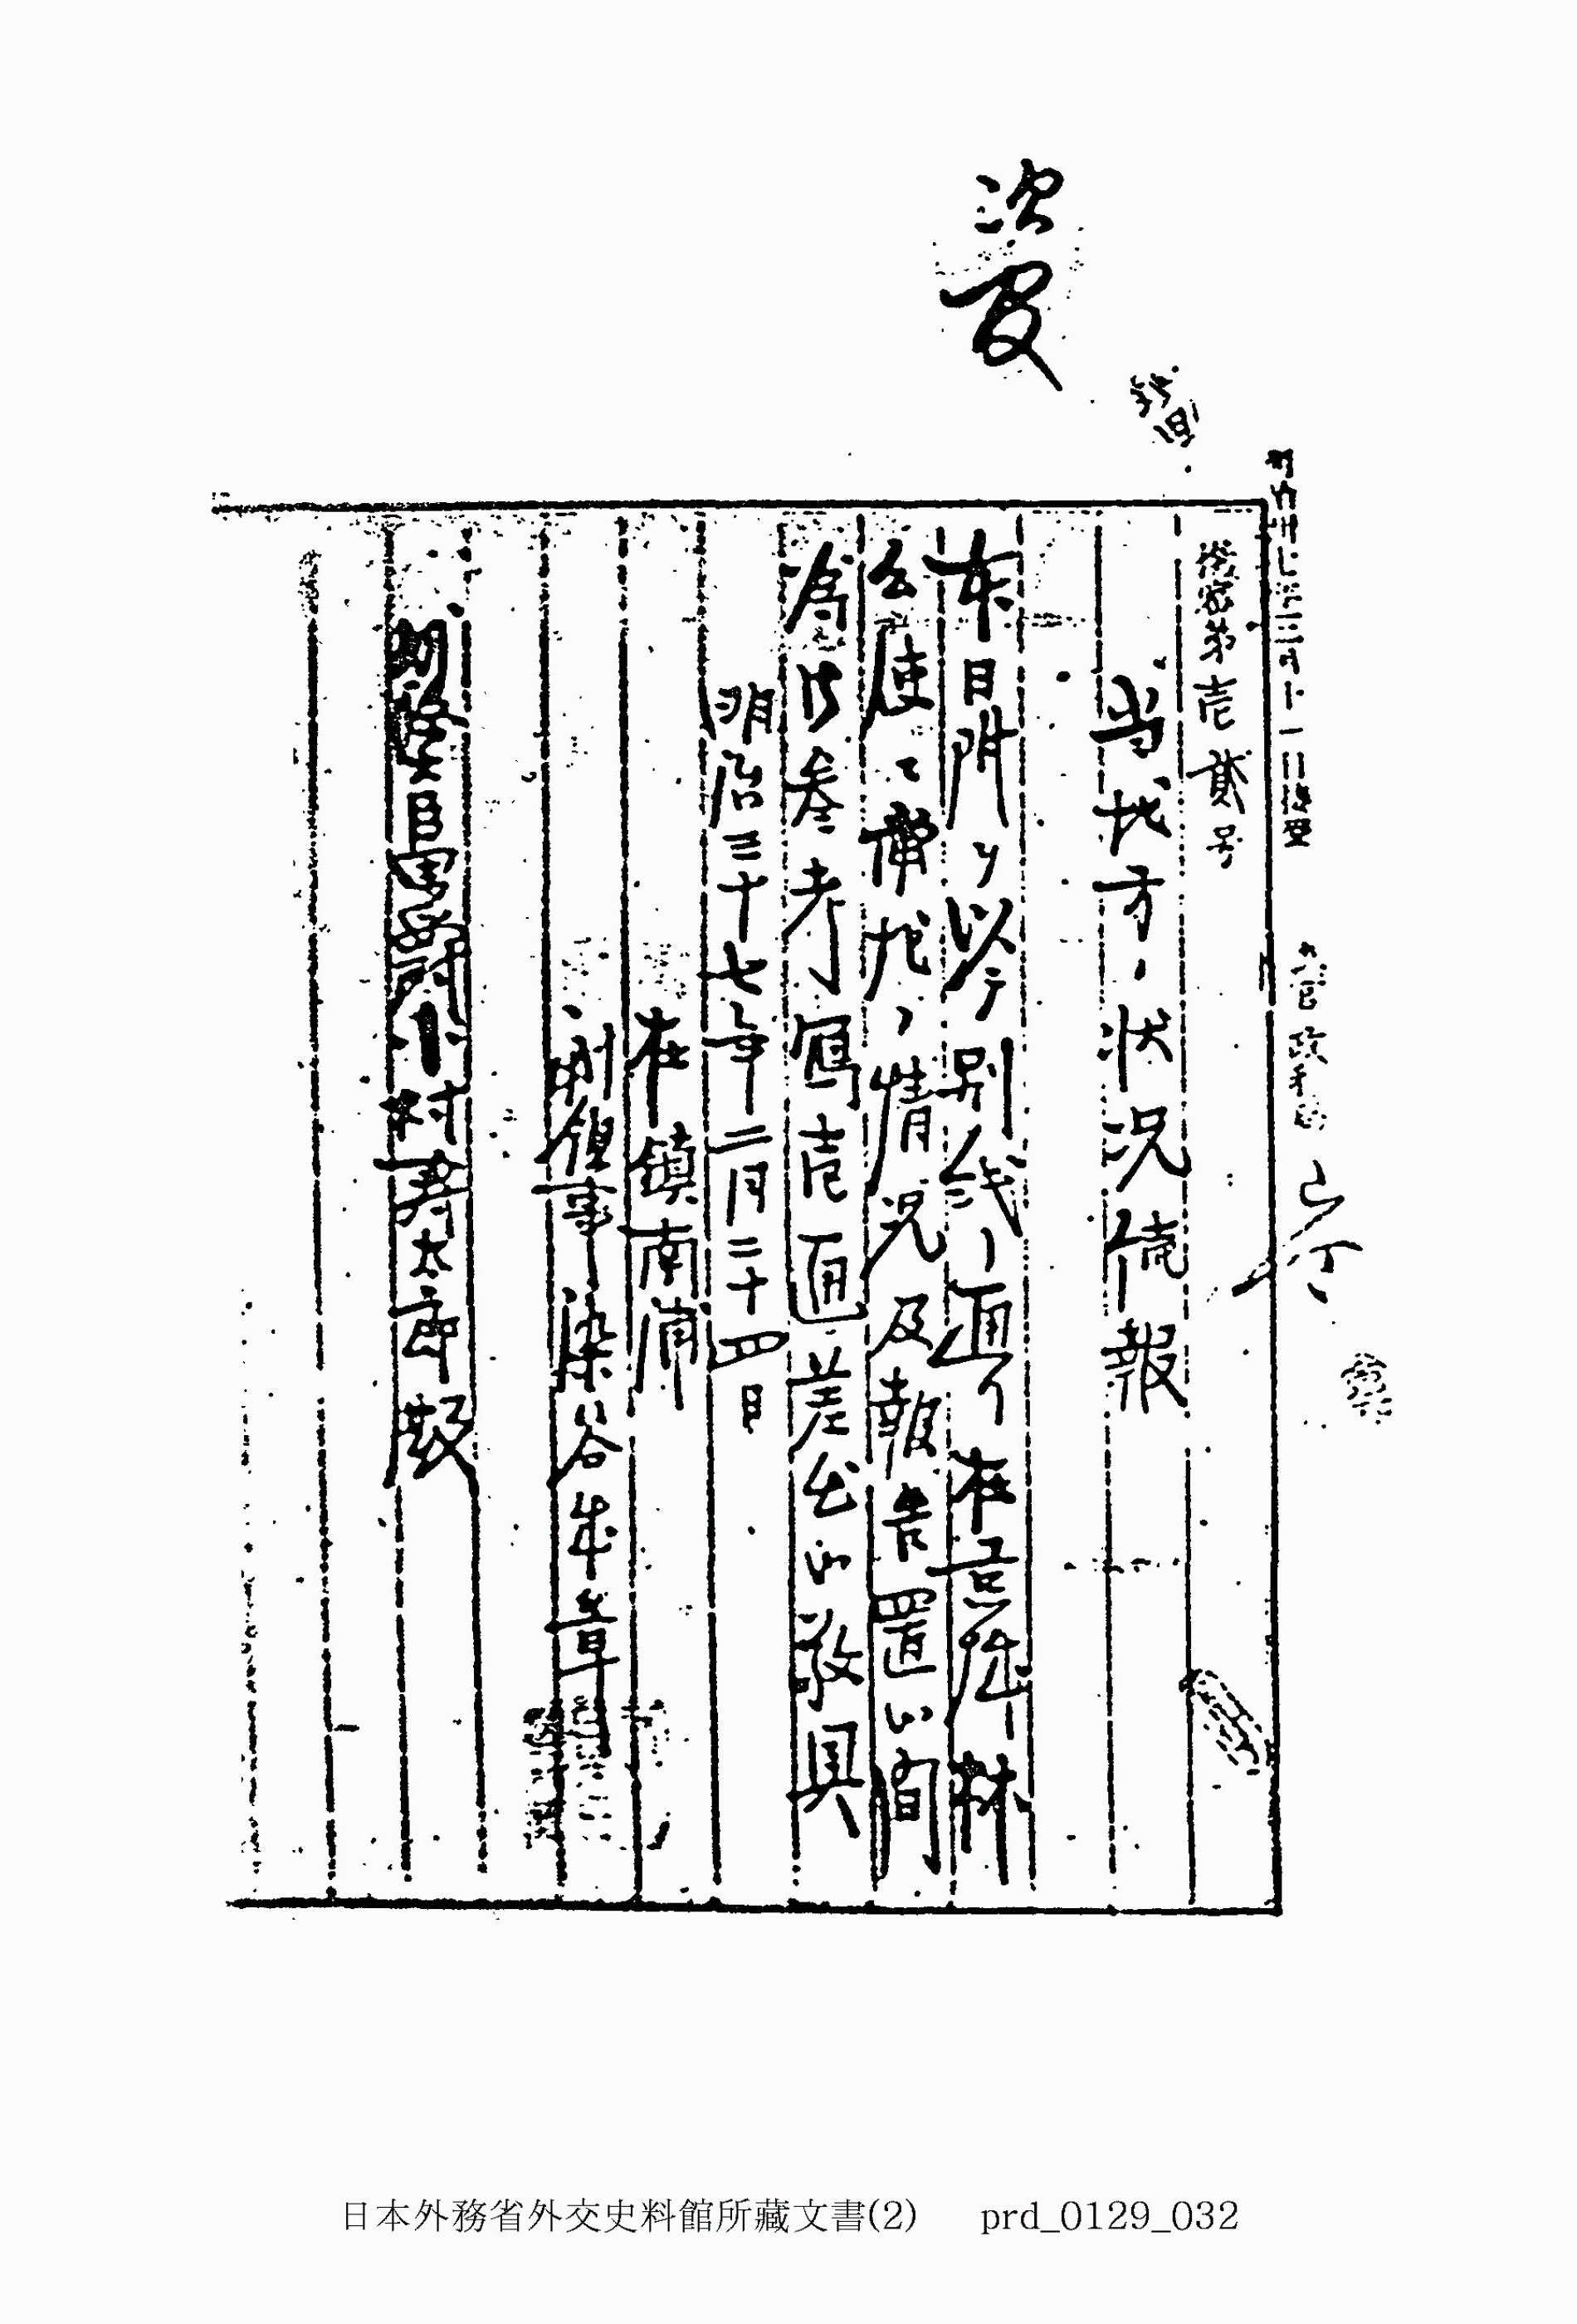 次官
明治卅七年三月十一日接受
主管 政務局
機密第壱貳号
当地方ノ状況偵報
本日附ヲ以テ別紙ノ通リ在京城林
公使ヘ当地ノ情況及報告置候間
為御参考写壱通差出候敬具
明治三十七年二月二十四日
在鎮南浦
副領事染谷成章
外務大臣男爵小村寿太郎殿
日本外務省外交史料館所藏文書(2) prd_0129_032